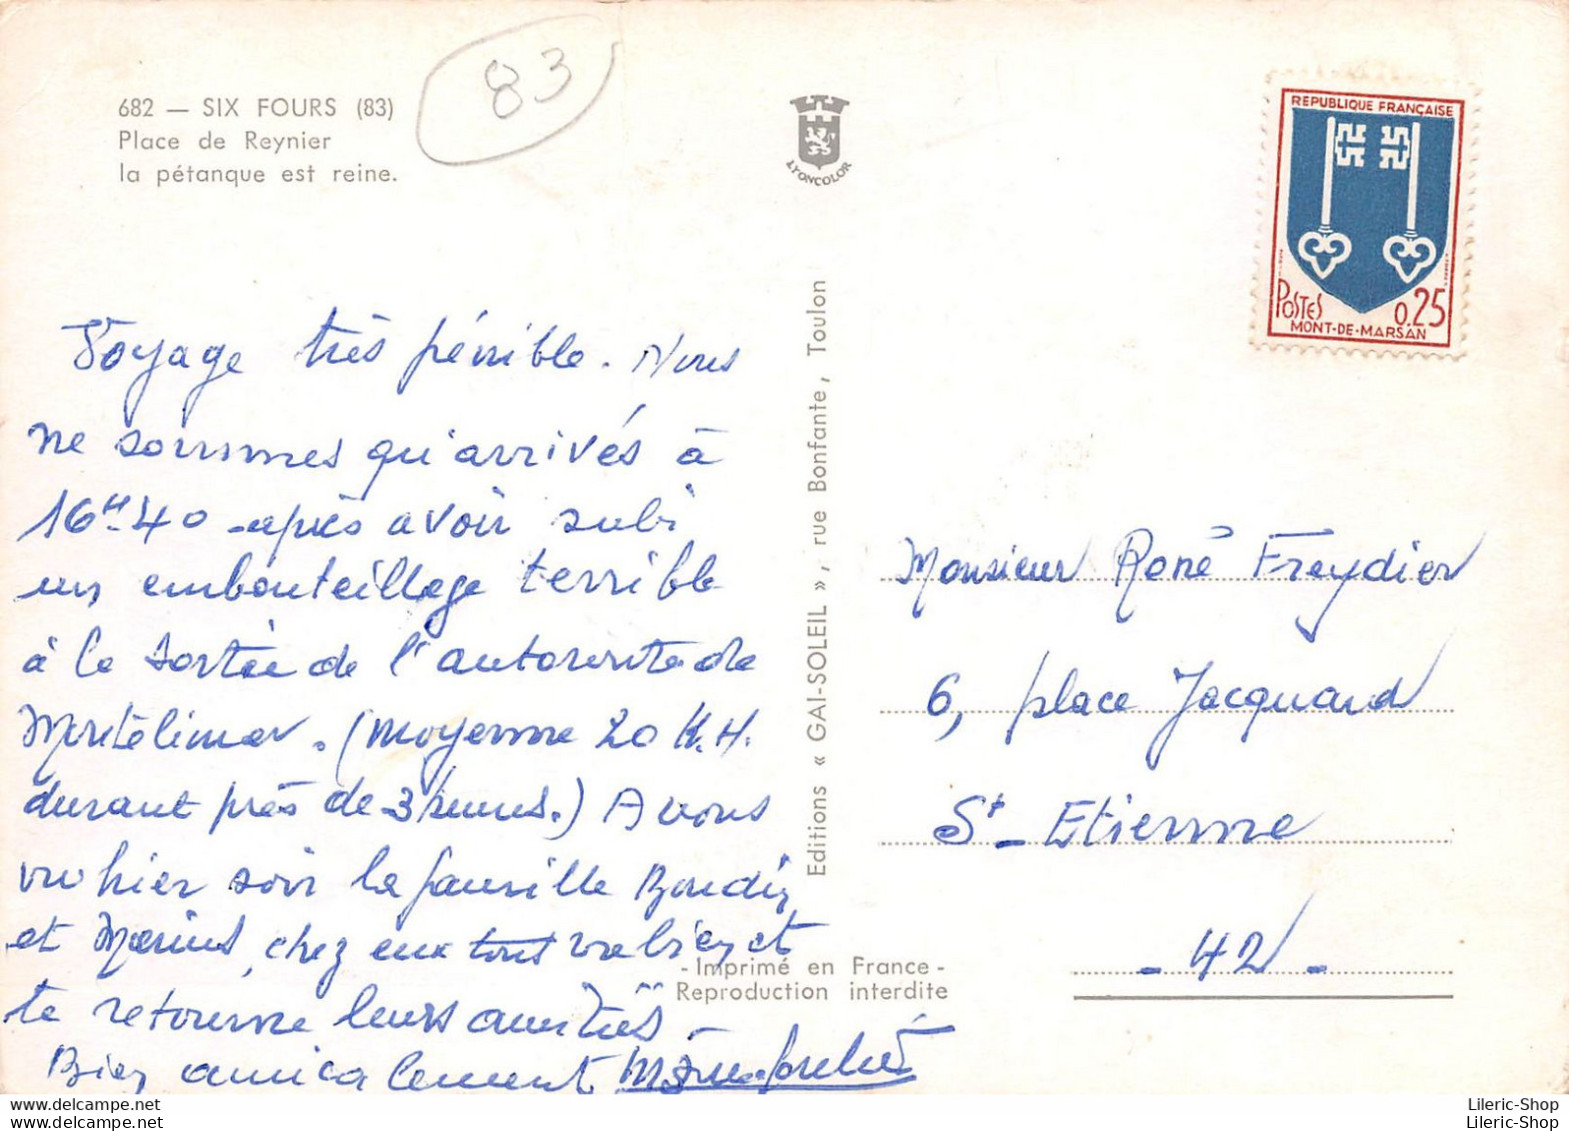 682 — SIX FOURS (83)
Place de Reynier
la pétanque est reine.
83
LYONCOLOR
REPUBLIQUE FRANÇAISE
POSTES 0.25
MONT-DE-MARSAN
Voyage très pénible. Nous
ne sommes qu'arrivés à
16H40 après avoir subi
un embouteillage terrible
à la sortie de l'autoroute de
Montélimar. (Moyenne 20 K.H.
durant près de 3 heures.) Avons
vu hier soir la famille Boudin
et Marius, chez eux tout va bien et
te retourne leurs amitiés.
Bien amicalement
Editions « GAI-SOLEIL », rue Bonfante, Toulon
- Imprimé en France -
Reproduction interdite
Monsieur René Freydier
6, place Jacquard
St-Etienne
- 42 -
delcampe.net
delcampe.net
Lileric-Shop
Lileric-Shop